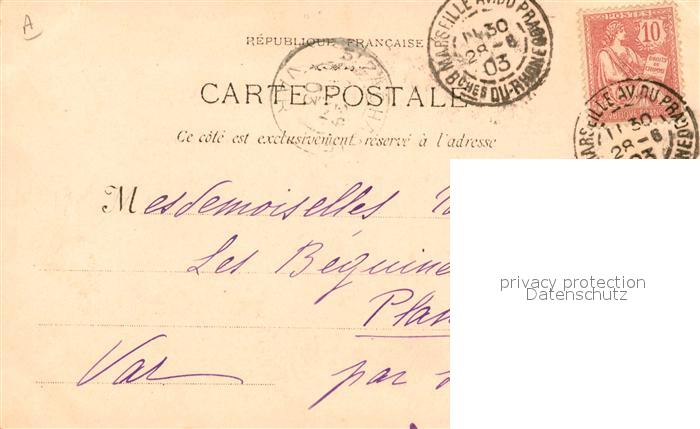 A
RÉPUBLIQUE FRANÇAISE
CARTE POSTALE
Ce côté est exclusivement réservé à l'adresse
MARSEILLE AV. DU PRADO
11 30
28 - 6
03
BCHES DU-RHONE
POSTES
10
DROITS DE L'HOMME
RÉPUBLIQUE FRANÇAISE
MARSEILLE AV. DU PRADO
11 30
28 - 6
03
Mesdemoiselles
Les Béguine
Plan
Var par
privacy protection
Datenschutz